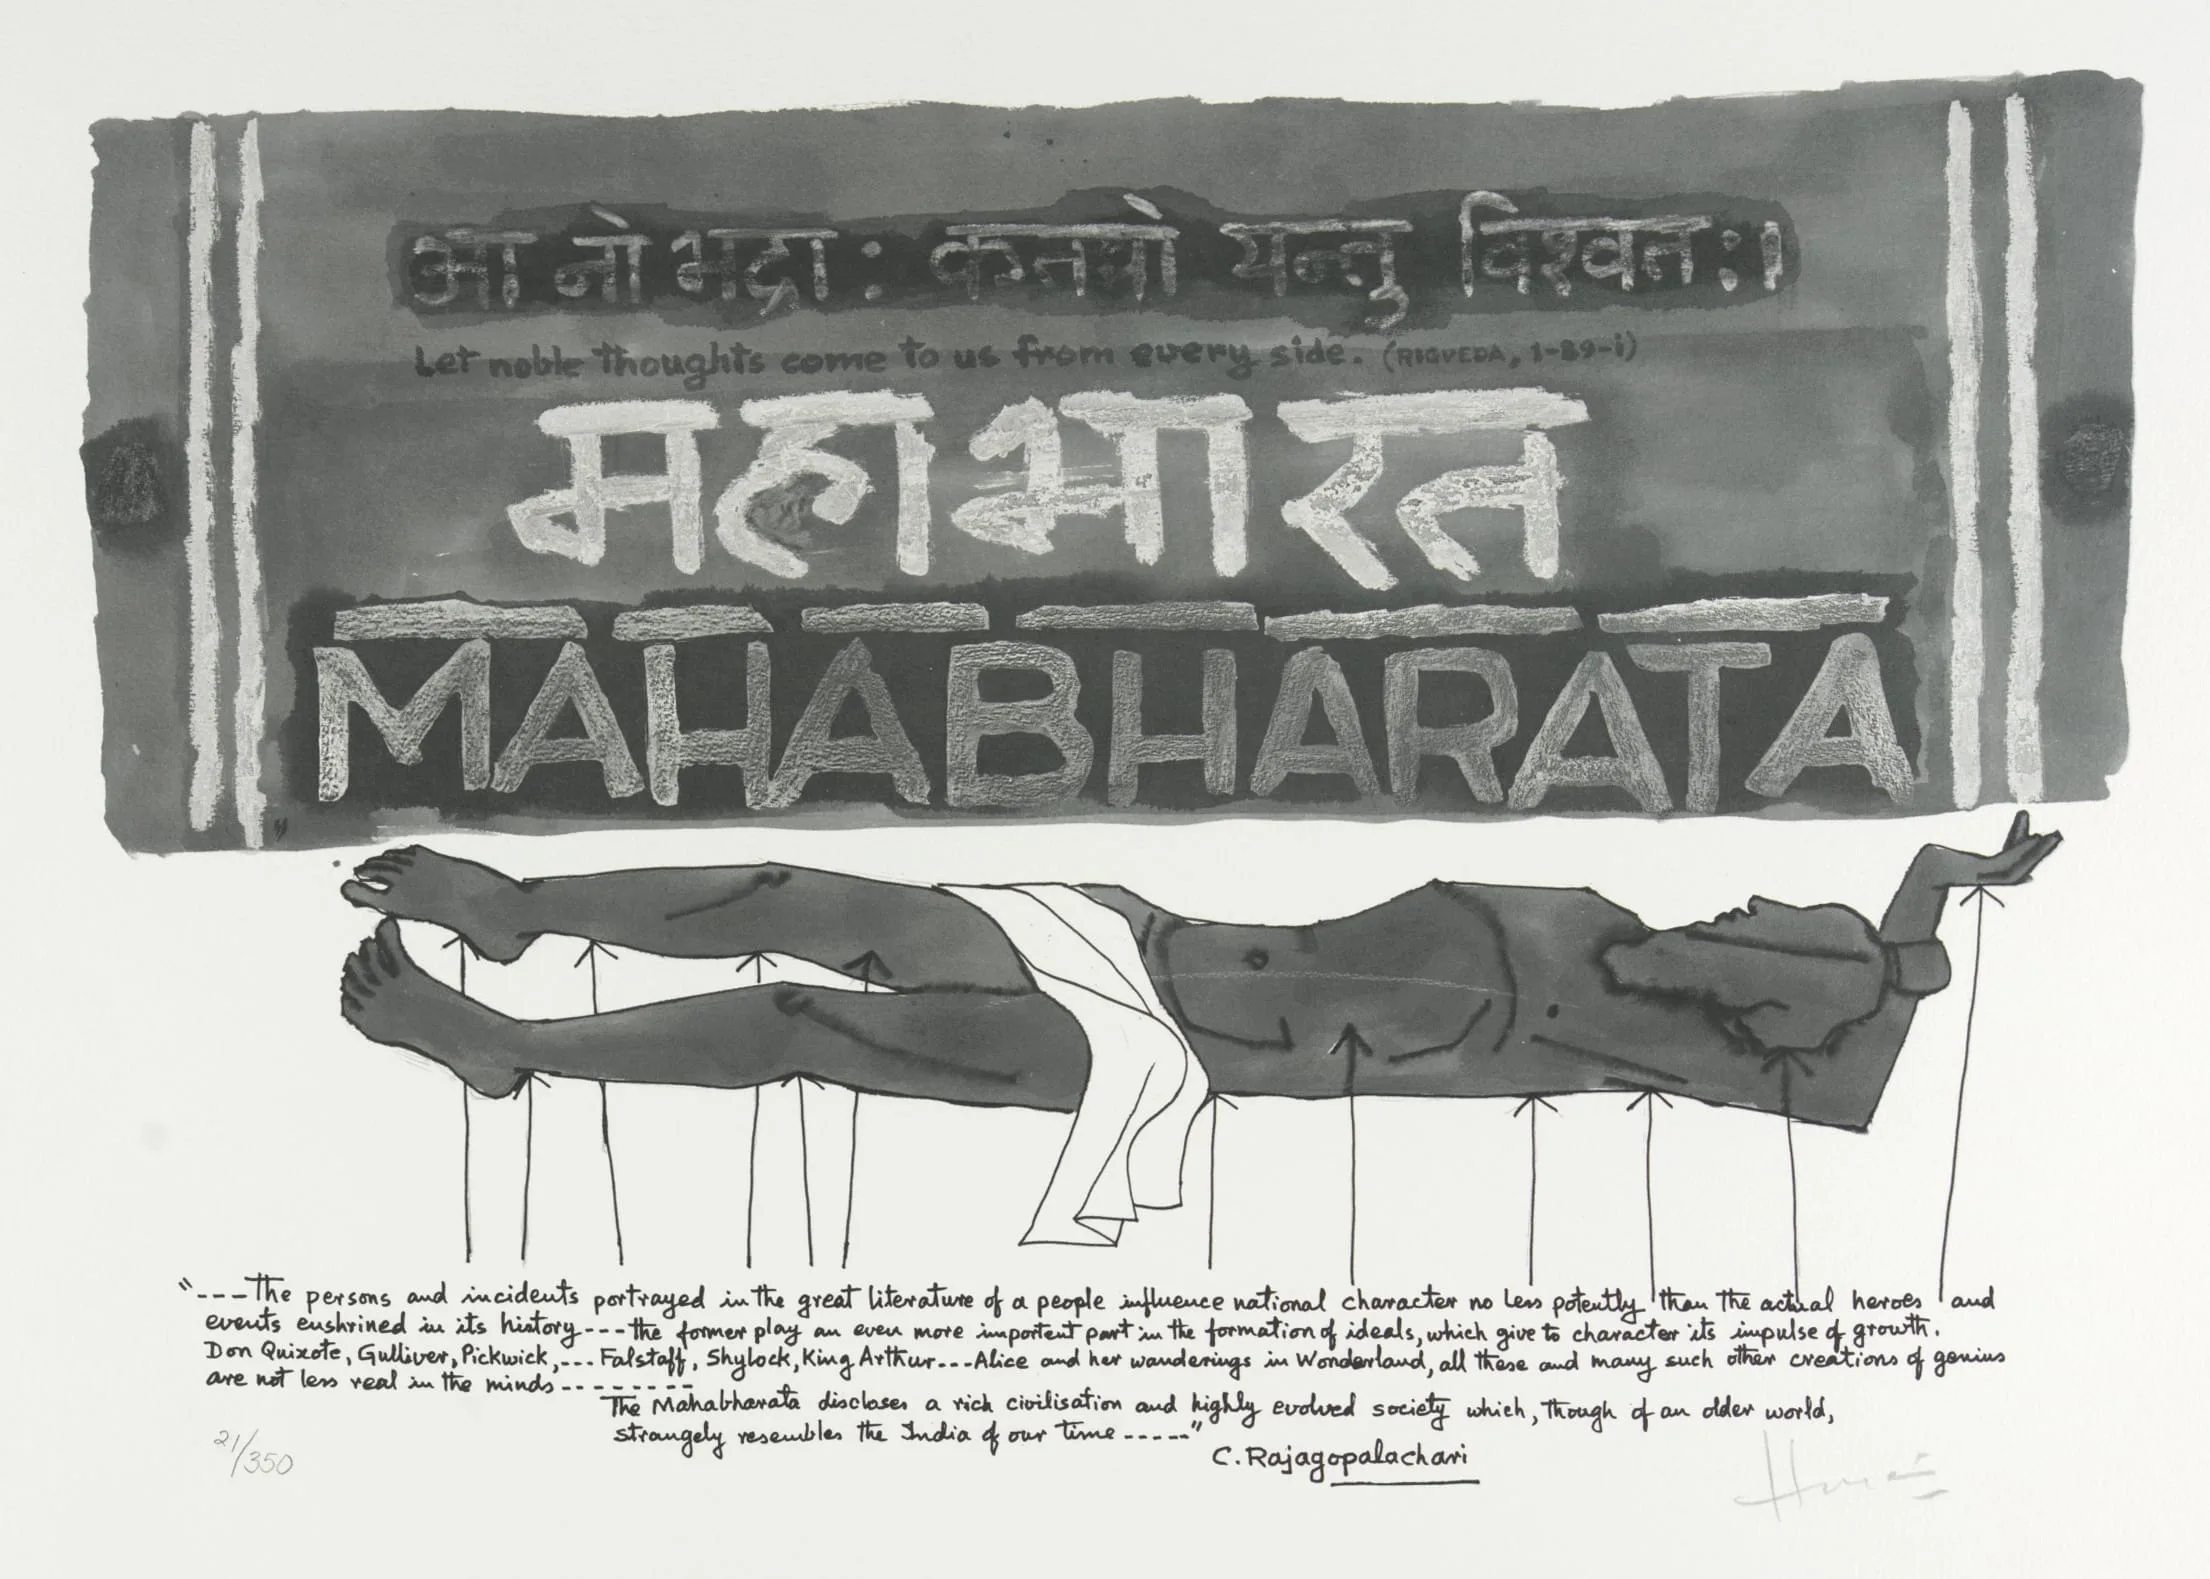 आ नो भद्राः क्रतवो यन्तु विश्वतः।
Let noble thoughts come to us from every side. (RIGVEDA, 1-89-i)
महाभारत
MAHABHARATA
"---The persons and incidents portrayed in the great literature of a people influence national character no less potently than the actual heroes and
events enshrined in its history---the former play an even more important part in the formation of ideals, which give to character its impulse of growth.
Don Quixote, Gulliver, Pickwick,--- Falstaff, Shylock, King Arthur---Alice and her wanderings in Wonderland, all these and many such other creations of genius
are not less real in the minds--------
The Mahabharata discloses a rich civilisation and highly evolved society which, though of an older world,
strangely resembles the India of our time-----"
C. Rajagopalachari
21/350
Husain